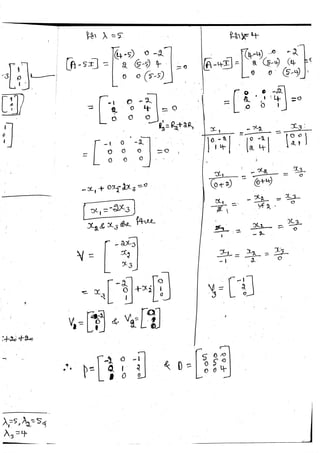 Put λ=5
[A-5I] = [(4-5) 0 -2
2 (5-5) 4
0 0 (5-5)] =0
= [-1 0 -2
2 0 4
0 0 0] =0
R₂=R₂+2R₁
= [-1 0 -2
0 0 0
0 0 0] =0
-x₁ + 0x₂-2x₃=0
x₁=-2x₃
x₂ & x₃ are free
V = [-2x₃
x₂
x₃]
= x₃ [-2
0
1] + x₂ [0
1
0]
V₁ = [-2
0
1] & V₂ = [0
1
0]
∴ P= [-2 0 -1
0 1 2
1 0 0] & D = [5 0 0
0 5 0
0 0 4]
Put λ=4
[A-4I] = [(4-4) 0 -2
2 (5-4) 4
0 0 (5-4)] =0
= [0 0 -2
2 1 4
0 0 1] =0
x₁/|0 -2
1 4| = -x₂/|0 -2
2 4| = x₃/|0 0
2 1|
x₁/(0+2) = -x₂/(0+4) = x₃/0
x₁/1 = x₂/-2 = x₃/0
x₁/-1 = x₂/2 = x₃/0
V₃ = [-1
2
0]
λ₁=5, λ₂=5,
λ₃=4